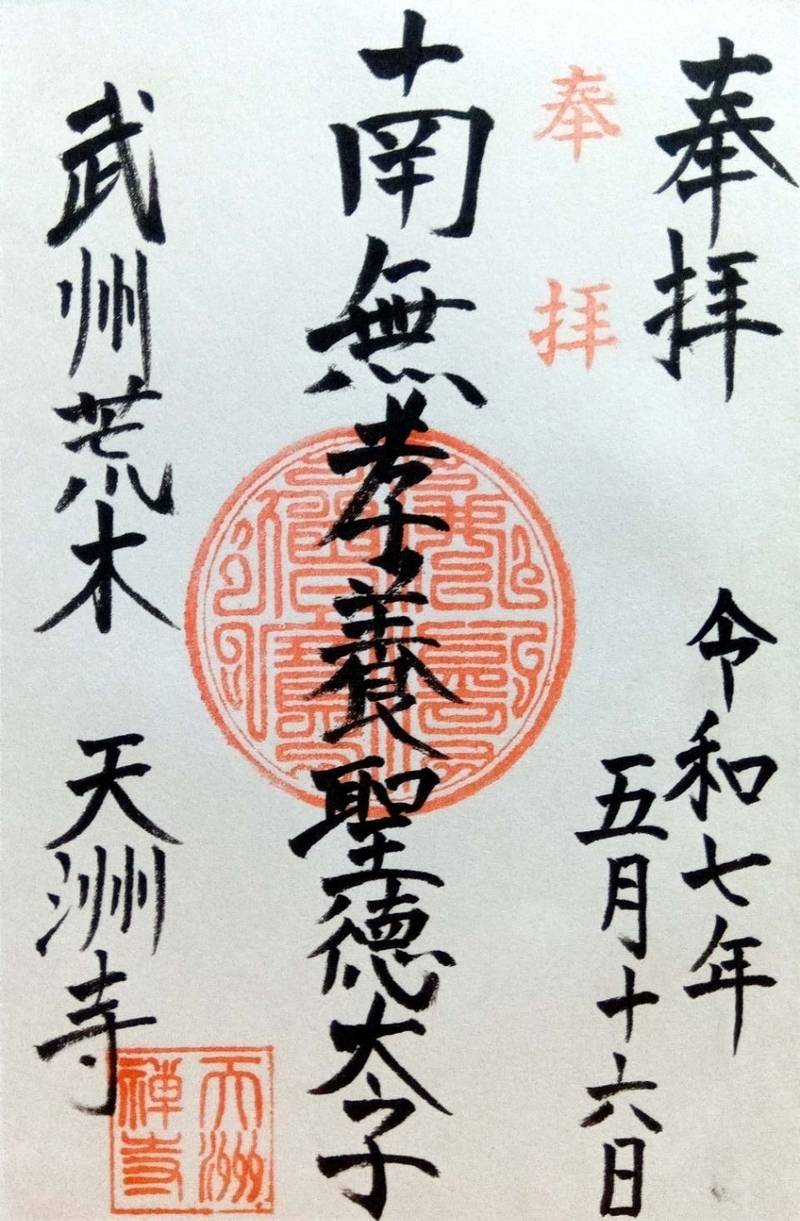 奉拝
令和七年
五月十六日
奉拝
南無孝養聖徳太子
武州荒木 天洲寺
天洲禅寺